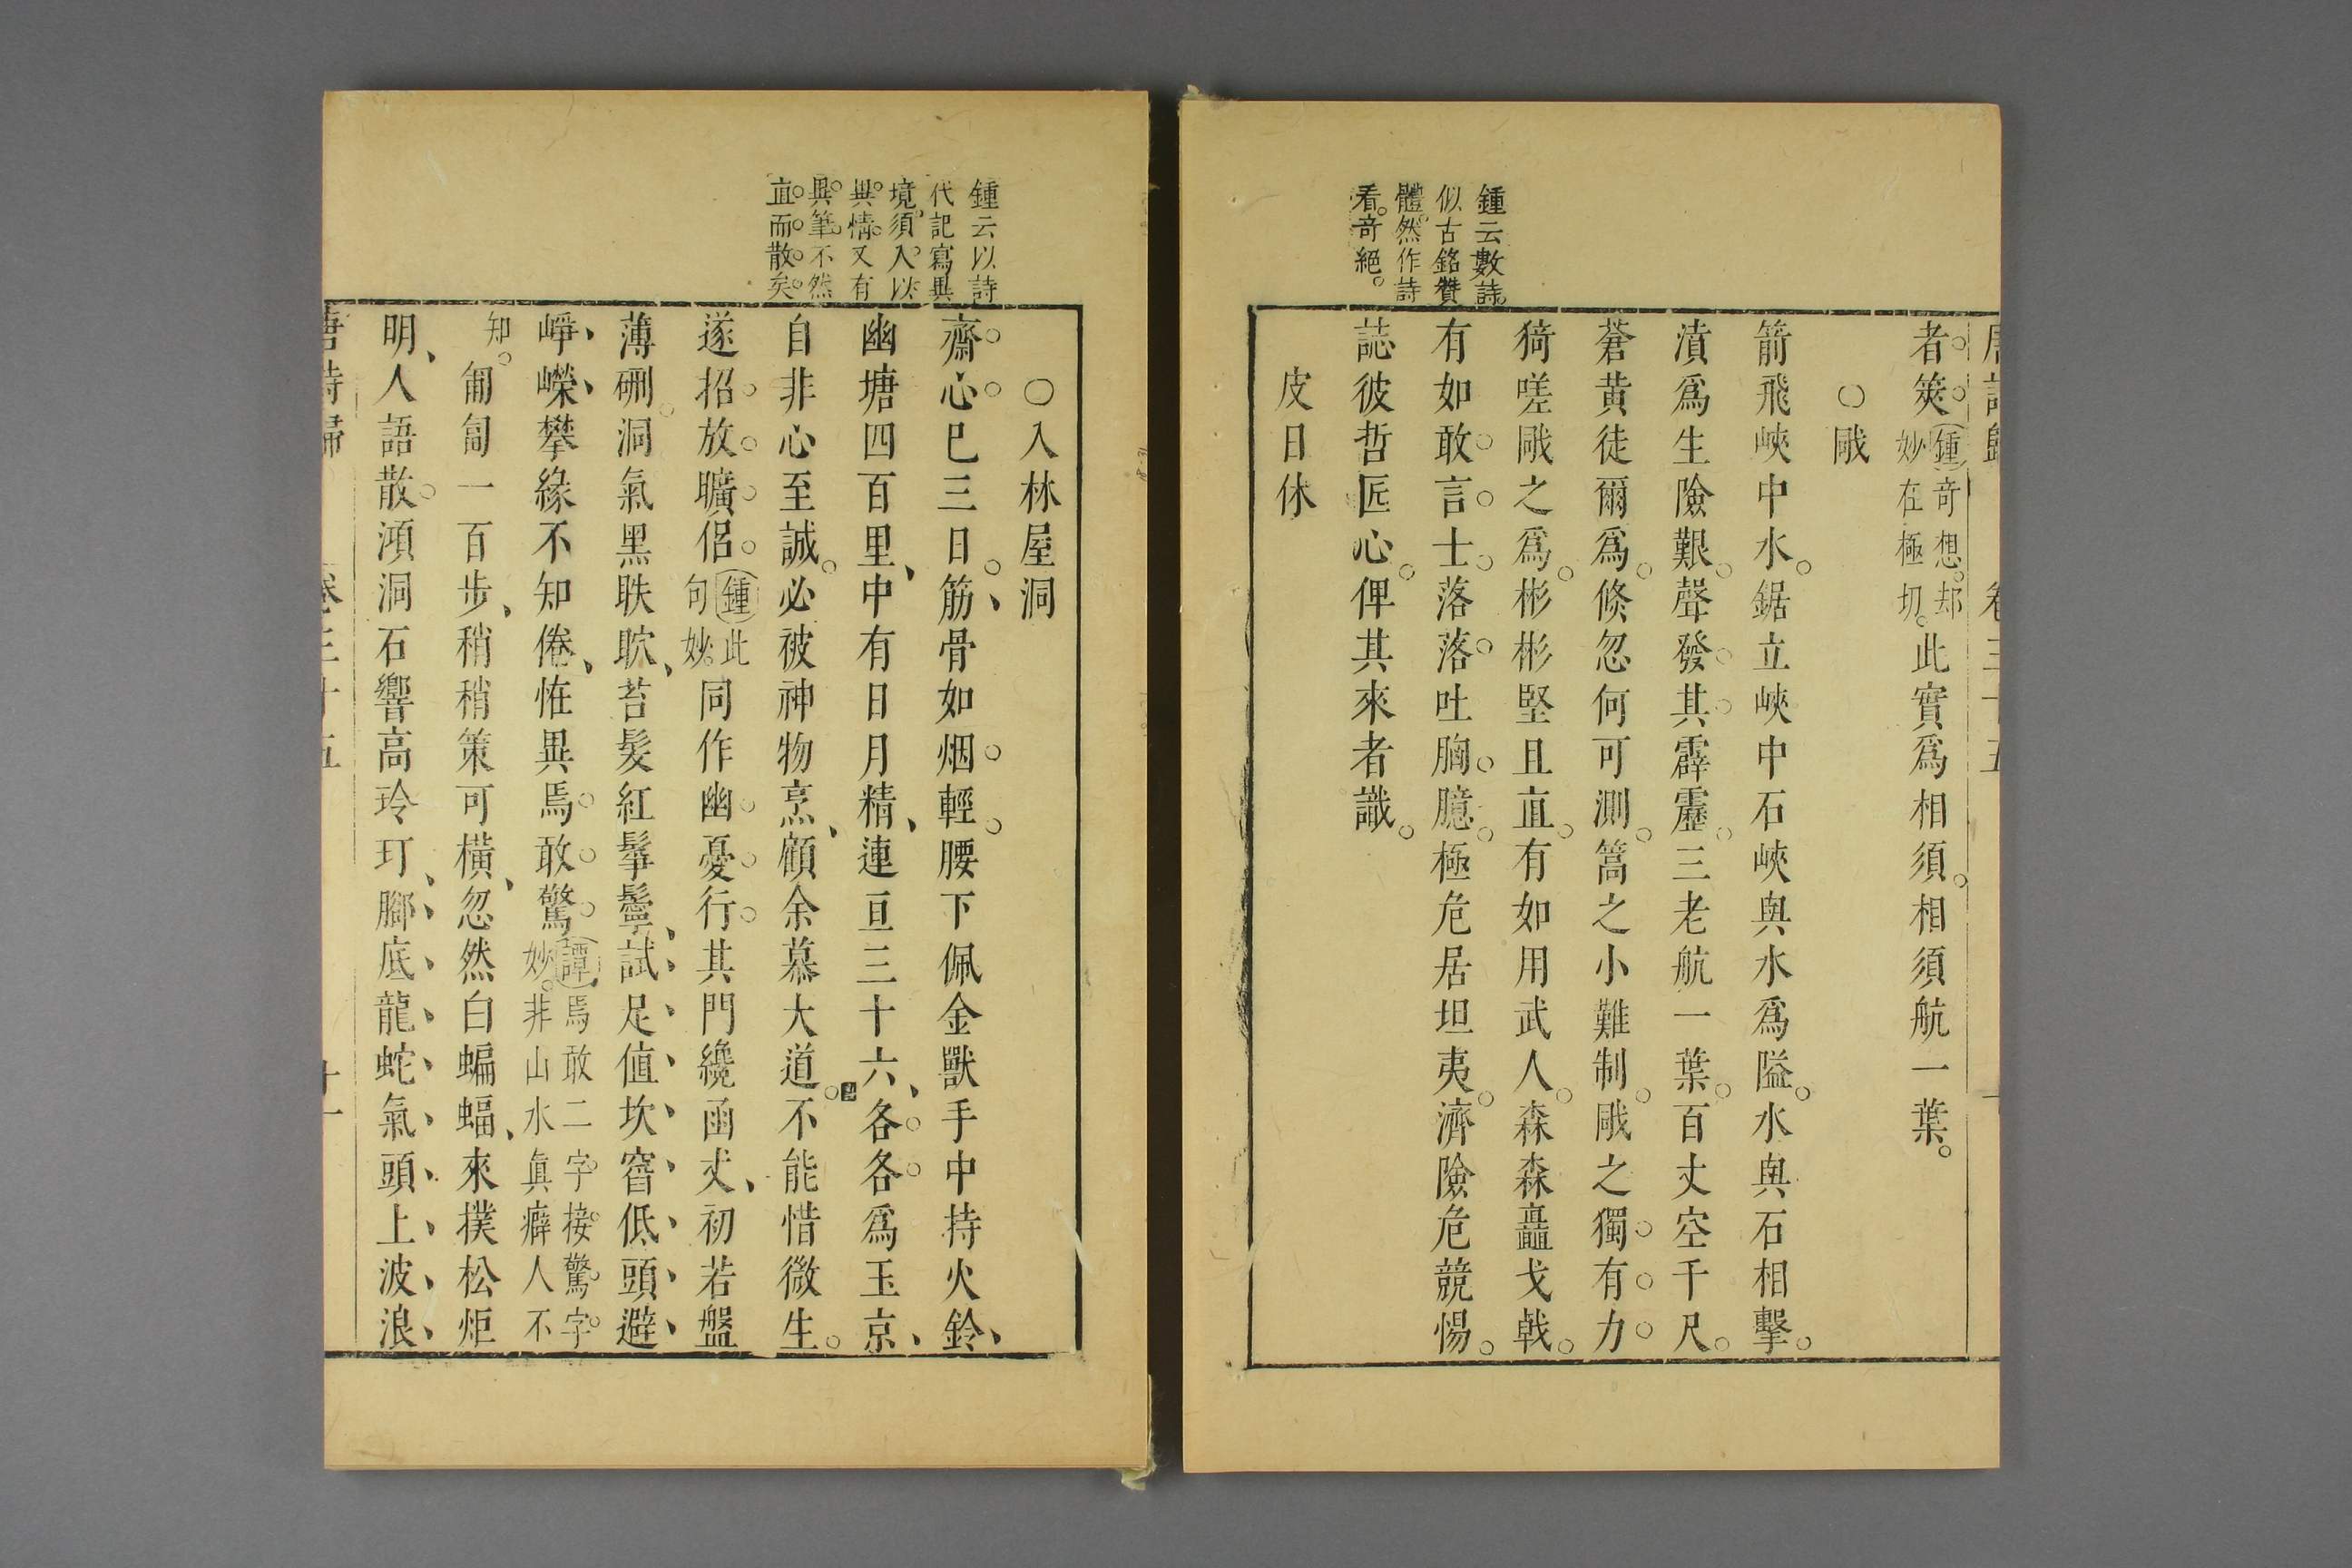 唐詩歸 卷三十五
者筴鍾奇想却妙在極切此實爲相須相須航一葉
○䤋
箭飛峽中水鋸立峽中石峽與水爲隘水與石相擊
濆爲生險艱聲發其霹靂三老航一葉百丈空千尺
蒼黃徒爾爲倏忽何可測篙之小難制之獨有力
猗嗟之爲彬彬堅且直有如用武人森森矗戈戟
有如敢言士落落吐胸臆極危居坦夷濟險危競惕
誌彼哲匠心俾其來者識
皮日休
鍾云數詩
似古銘贊
體然作詩
看奇絕
○入林屋洞
齋心巳三日筋骨如烟輕腰下佩金獸手中持火鈴
幽塘四百里中有日月精連亘三十六各各爲玉京
自非心至誠必被神物烹顧余慕大道不能惜微生
遂招放曠侶鍾此句妙同作幽憂行其門纔函丈初若盤
薄硎洞氣黑眣䀪苔髮紅鬇鬡試足値坎窞低頭避
崢嶸攀緣不知倦恠異焉敢驚譚焉敢二字接驚字妙非山水眞癖人不
知匍匐一百步稍稍策可橫忽然白蝙蝠來撲松炬
明人語散澒洞石響高玲玎腳底龍蛇氣頭上波浪
鍾云以詩
代記寫異
境須入以
異情又有
異筆不然
直而散矣
唐詩歸 卷三十五 十一